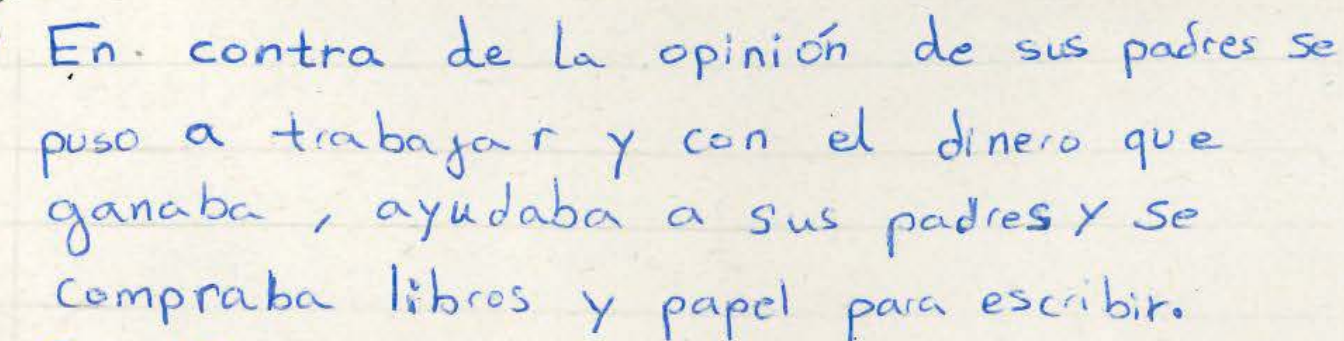 En contra de la opinión de sus padres se
puso a trabajar y con el dinero que
ganaba, ayudaba a sus padres y se
compraba libros y papel para escribir.